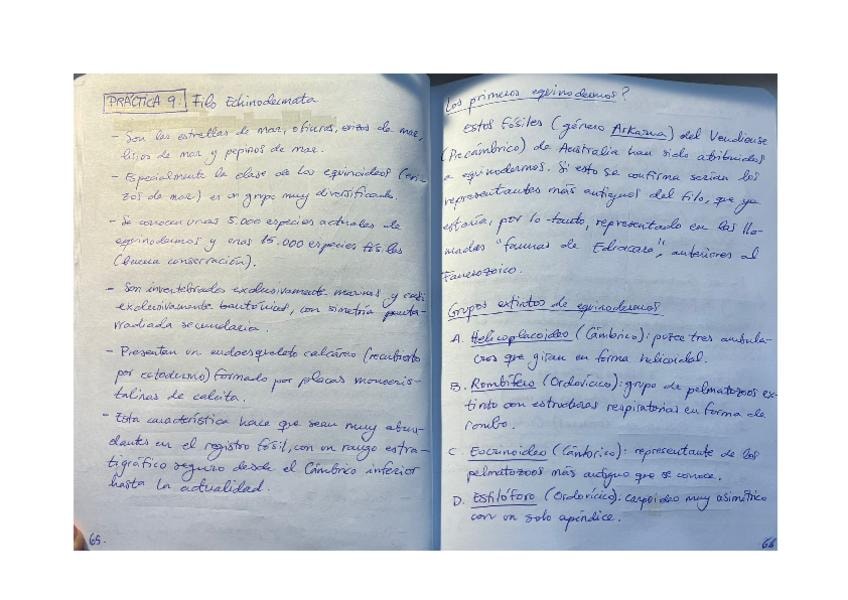 PRÁCTICA 9: Filo Echinodermata
- Son las estrellas de mar, ofiuras, erizos de mar,
lirios de mar y pepinos de mar.
- Especialmente la clase de los equinoideos (eri-
zos de mar) es un grupo muy diversificado.
- Se conocen unas 5.000 especies actuales de
equinodermos y unas 15.000 especies fósiles
(buena conservación).
- Son invertebrados exclusivamente marinos y casi
exclusivamente bentónicos, con simetría penta-
rradiada secundaria.
- Presentan un endoesqueleto calcáreo (recubierto
por ectodermo) formado por placas monocris-
talinas de calcita.
- Esta característica hace que sean muy abun-
dantes en el registro fósil, con un rango estra-
tigráfico seguro desde el Cámbrico inferior
hasta la actualidad.
65.
¿Los primeros equinodermos?
Estos fósiles (género Arkarua) del Vendiense
(Precámbrico) de Australia han sido atribuidos
a equinodermos. Si esto se confirma serían los
representantes más antiguos del filo, que ya
estaría, por lo tanto, representado en las lla-
madas "faunas de Ediacara", anteriores al
Fanerozoico.
Grupos extintos de equinodermos
A. Helicoplacoideo (Cámbrico): posee tres ambula-
cros que giran en forma helicoidal.
B. Rombífero (Ordovícico): grupo de pelmatozoos ex-
tinto con estructuras respiratorias en forma de
rombo.
C. Eocrinoideo (Cámbrico): representante de los
pelmatozoos más antiguo que se conoce.
D. Estilóforo (Ordovícico): carpoideo muy asimétrico
con un solo apéndice.
66